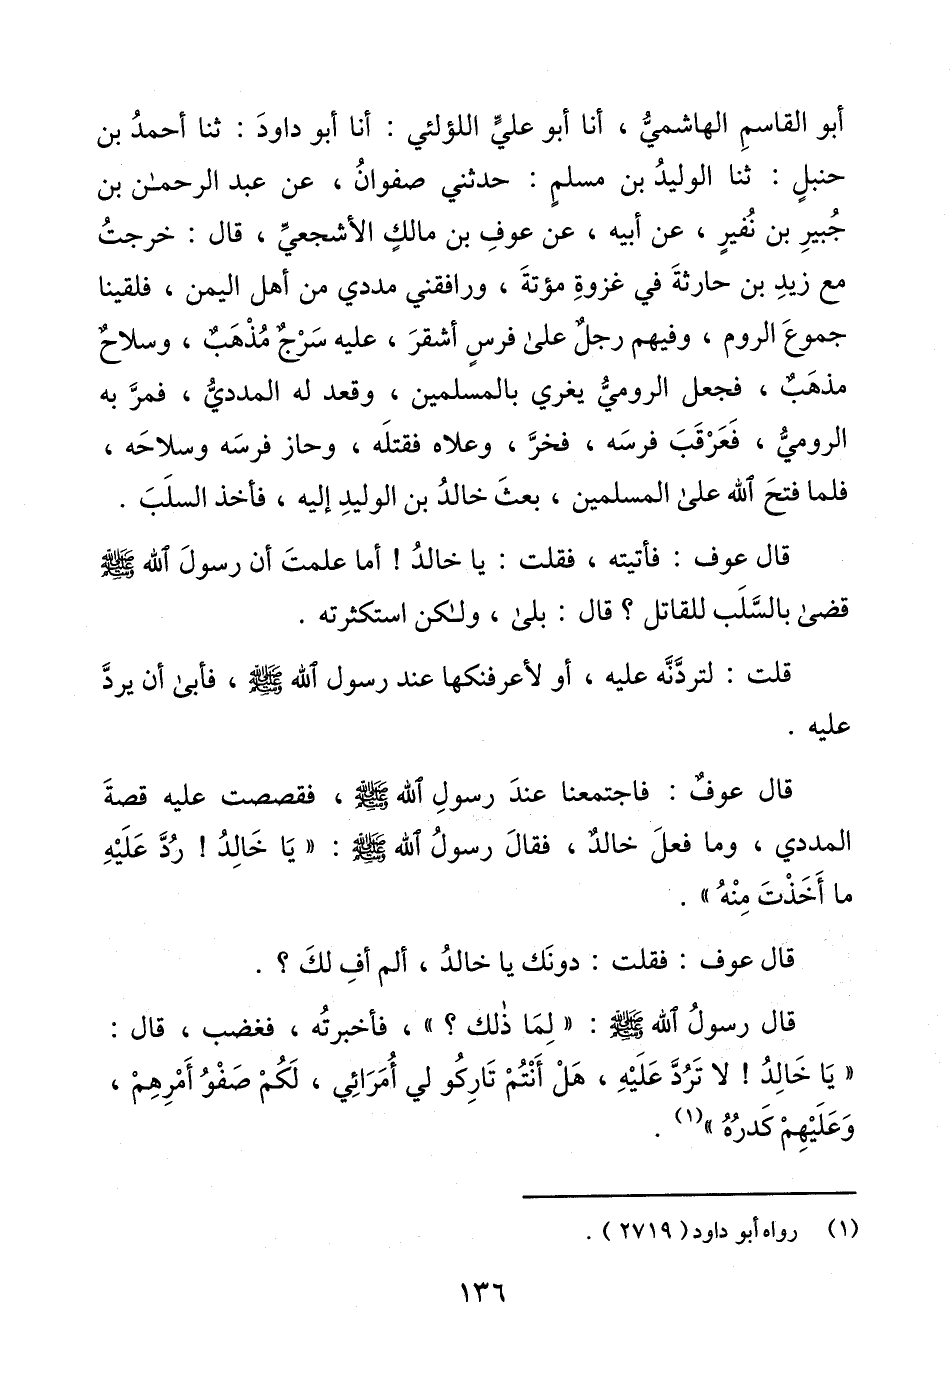 أبو القاسمِ الهاشميُّ ، أنا أبو عليٍّ اللؤلئي : أنا أبو داودَ : ثنا أحمدُ بن
حنبلٍ : ثنا الوليدُ بن مسلمٍ : حدثني صفوانُ ، عن عبد الرحمـٰن بن
جُبيرِ بن نُفيرٍ ، عن أبيه ، عن عوفِ بن مالكٍ الأشجعيِّ ، قال : خرجتُ
مع زيدِ بن حارثةَ في غزوةِ مؤتةَ ، ورافقني مددي من أهل اليمن ، فلقينا
جموعَ الروم ، وفيهم رجلٌ علىٰ فرسٍ أشقرَ ، عليه سَرْجٌ مُذْهَبٌ ، وسلاحٌ
مذهَبٌ ، فجعل الروميُّ يغري بالمسلمين ، وقعد له المدديُّ ، فمرَّ به
الروميُّ ، فَعَرْقَبَ فرسَه ، فخرَّ ، وعلاه فقتلَه ، وحاز فرسَه وسلاحَه ،
فلما فتحَ ٱلله علىٰ المسلمين ، بعثَ خالدُ بن الوليدِ إليه ، فأخذ السلَبَ .
قال عوف : فأتيته ، فقلت : يا خالدُ ! أما علمتَ أن رسولَ ٱلله ﷺ
قضىٰ بالسَّلَب للقاتل ؟ قال : بلىٰ ، ولـٰكن استكثرته .
قلت : لتردَّنَّه عليه ، أو لأعرفنكها عند رسول ٱلله ﷺ ، فأبىٰ أن يردَّ
عليه .
قال عوفٌ : فاجتمعنا عندَ رسولِ ٱلله ﷺ ، فقصصت عليه قصةَ
المددي ، وما فعلَ خالدٌ ، فقالَ رسولُ ٱلله ﷺ : « يَا خَالِدُ ! رُدَّ عَلَيْهِ
ما أَخَذْتَ مِنْهُ » .
قال عوف : فقلت : دونَك يا خالدُ ، ألم أفِ لكَ ؟ .
قال رسولُ ٱلله ﷺ : « لِمَا ذٰلك ؟ » ، فأخبرتُه ، فغضب ، قال :
« يَا خَالِدُ ! لا تَرُدَّ عَلَيْهِ ، هَلْ أَنْتُمْ تَارِكُو لي أُمَرَائِي ، لَكُمْ صَفْوُ أَمْرِهِمْ ،
وَعَلَيْهِمْ كَدرُهُ »(١) .
(١) رواه أبو داود ( ٢٧١٩ ) .
١٣٦